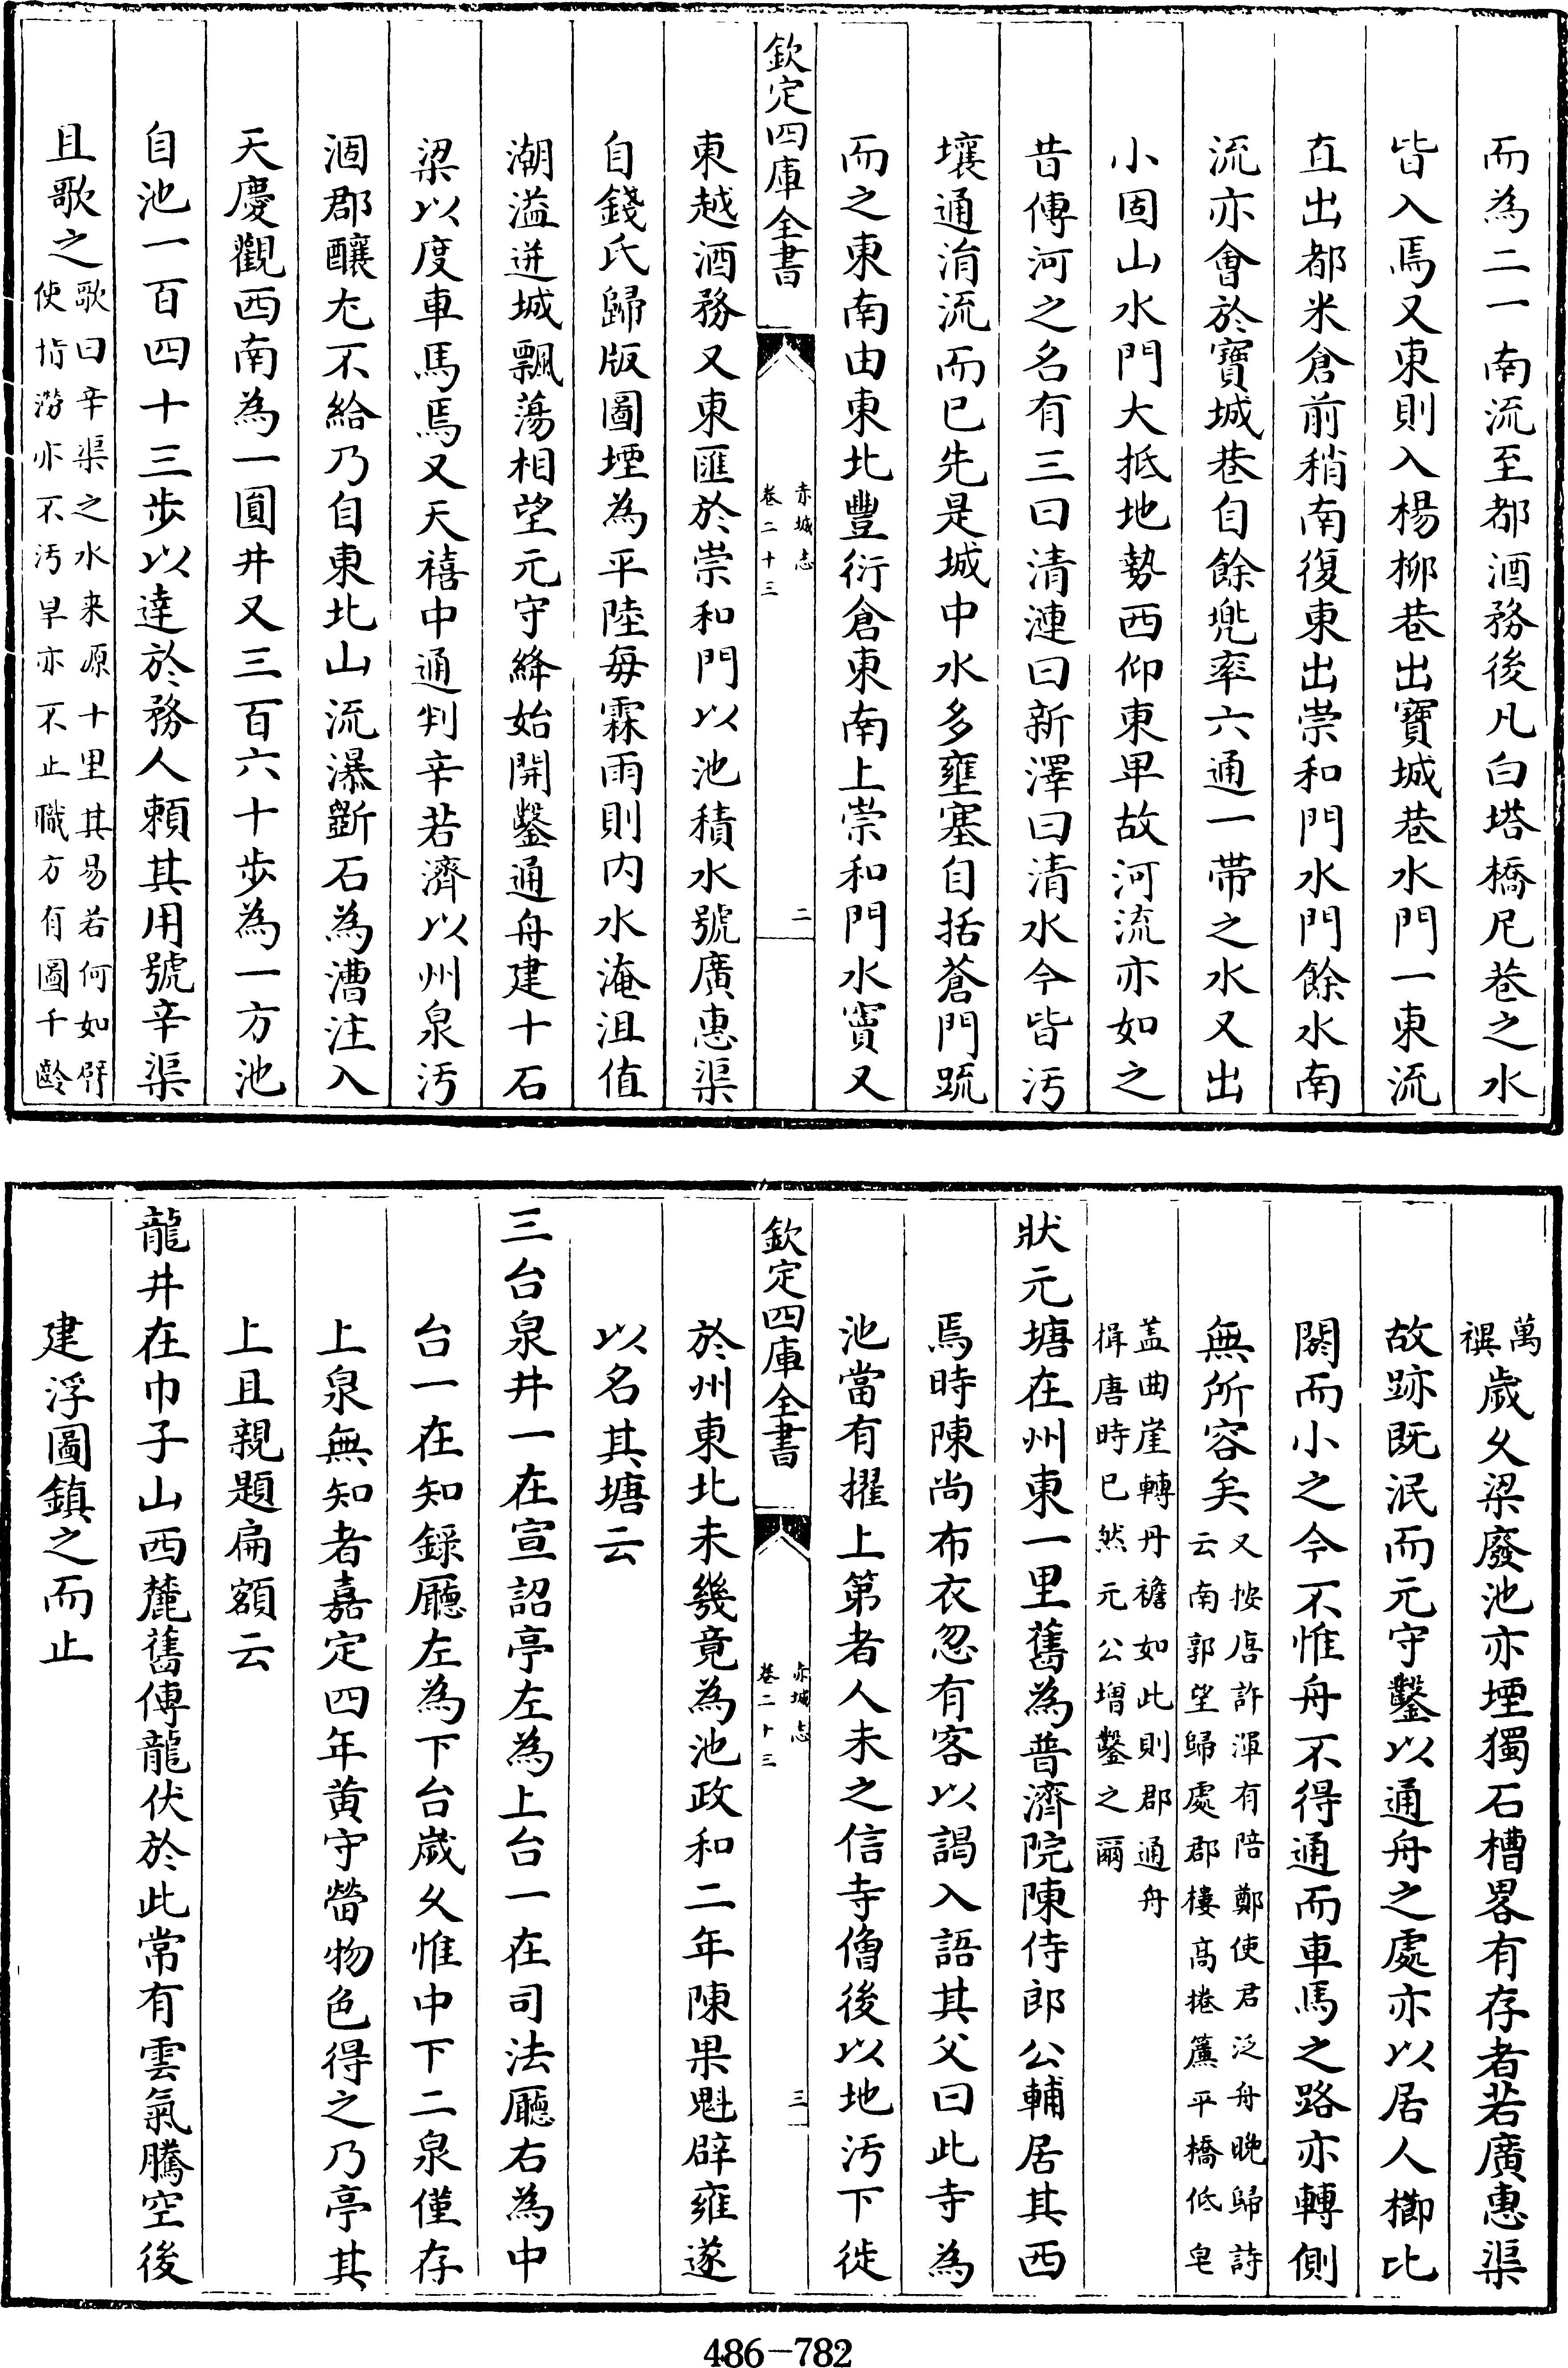 而為二一南流至都酒務後凡白塔橋尼巷之水
皆入焉又東則入楊柳巷出寶城巷水門一東流
直出都米倉前稍南復東出崇和門水門餘水南
流亦會於寶城巷自餘兠率六通一帶之水又出
小固山水門大抵地勢西仰東卑故河流亦如之
昔傳河之名有三曰清漣曰新澤曰清水今皆汚
壤通涓流而已先是城中水多壅塞自括蒼門䟽
而之東南由東北豐衍倉東南上崇和門水竇又
欽定四庫全書
赤城志
卷二十三
二
東越酒務又東匯於崇和門以池積水號廣惠渠
自錢氏歸版圖堙為平陸毎霖雨則内水淹沮值
潮溢迸城飄蕩相望元守絳始開鑿通舟建十石
梁以度車馬焉又天禧中通判辛若濟以州泉汚
涸郡釀尢不給乃自東北山流瀑斵石為漕注入
天慶觀西南為一圓井又三百六十歩為一方池
自池一百四十三歩以達於務人頼其用號辛渠
且歌之歌曰辛渠之水来原十里其易若何如臂
使指澇亦不汚旱亦不止職方有圖千齡
萬
禩歲久梁廢池亦堙獨石槽畧有存者若廣惠渠
故跡既泯而元守鑿以通舟之處亦以居人櫛比
閼而小之今不惟舟不得通而車馬之路亦轉側
無所容矣又按唐許渾有陪鄭使君泛舟晚歸詩
云南郭望歸處郡樓高捲簾平橋低皂
盖曲崖轉丹襜如此則郡通舟
楫唐時已然元公增鑿之爾
狀元塘在州東一里舊為普濟院陳侍郎公輔居其西
焉時陳尚布衣忽有客以謁入語其父曰此寺為
池當有擢上第者人未之信寺僧後以地汚下徙
欽定四庫全書
赤城志
卷二十三
三
於州東北未幾竟為池政和二年陳果魁辟雍遂
以名其塘云
三台泉井一在宣詔亭左為上台一在司法廳右為中
台一在知錄廳左為下台歲久惟中下二泉僅存
上泉無知者嘉定四年黄守㽦物色得之乃亭其
上且親題扁額云
龍井在巾子山西麓舊傳龍伏於此常有雲氣騰空後
建浮圖鎮之而止
486-782